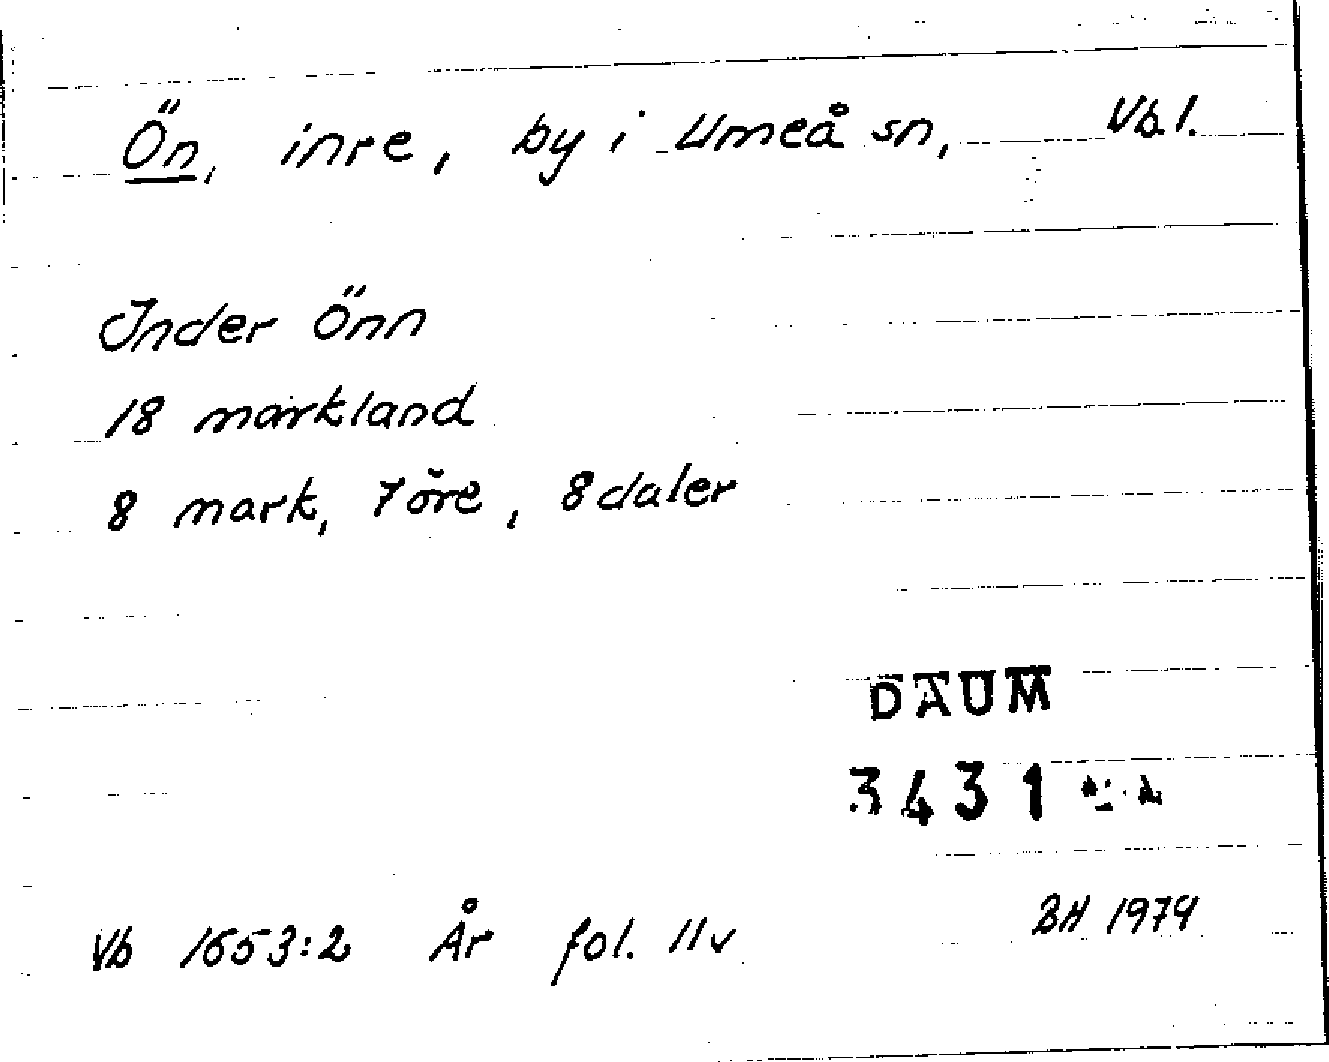 Ön, inre, by i Umeå sn, Vb l.
Inder Önn
18 markland
8 mark, 7 öre, 8 daler
DAUM
3431
Vb 1653:2 År fol. 11v BH 1979